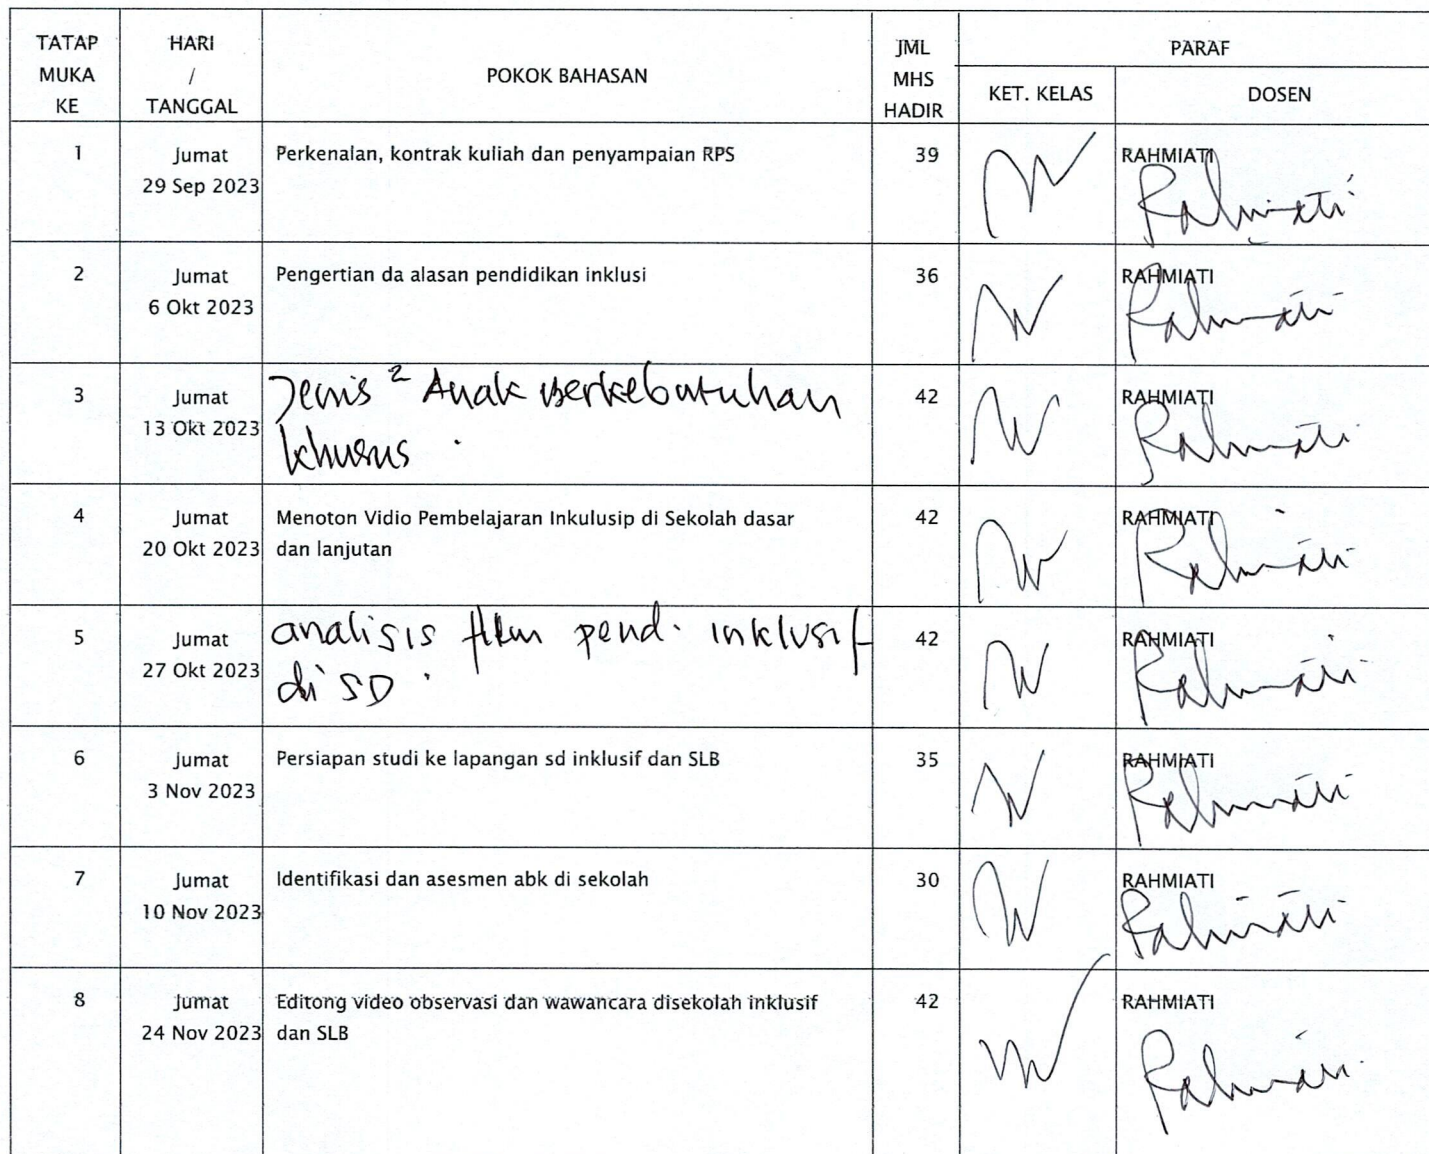 TATAP MUKA KE
HARI / TANGGAL
POKOK BAHASAN
JML MHS HADIR
PARAF
KET. KELAS
DOSEN
1
Jumat
29 Sep 2023
Perkenalan, kontrak kuliah dan penyampaian RPS
39
RAHMIATI
Rahmiati
2
Jumat
6 Okt 2023
Pengertian da alasan pendidikan inklusi
36
RAHMIATI
Rahmiati
3
Jumat
13 Okt 2023
Jenis² Anak Berkebutuhan
khusus.
42
RAHMIATI
Rahmiati
4
Jumat
20 Okt 2023
Menoton Vidio Pembelajaran Inkulusip di Sekolah dasar
dan lanjutan
42
RAHMIATI
Rahmiati
5
Jumat
27 Okt 2023
analisis film pend. inklusif
di SD.
42
RAHMIATI
Rahmiati
6
Jumat
3 Nov 2023
Persiapan studi ke lapangan sd inklusif dan SLB
35
RAHMIATI
Rahmiati
7
Jumat
10 Nov 2023
Identifikasi dan asesmen abk di sekolah
30
RAHMIATI
Rahmiati
8
Jumat
24 Nov 2023
Editong video observasi dan wawancara disekolah inklusif
dan SLB
42
RAHMIATI
Rahmiati